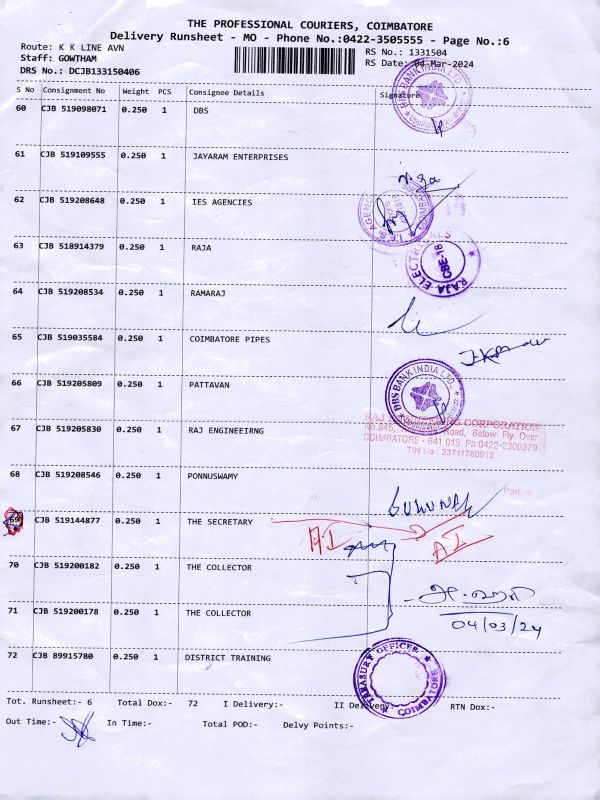 THE PROFESSIONAL COURIERS, COIMBATORE
Delivery Runsheet - MO - Phone No.:0422-3505555 - Page No.:6
Route: K K LINE AVN
RS No.: 1331504
Staff: GOWTHAM
RS Date: 04-Mar-2024
DRS No.: DCJB133150406
S No Consignment No Weight PCS Consignee Details Signature
60 CJB 519098071 0.250 1 DBS
DBS BANK INDIA LTD.
61 CJB 519109555 0.250 1 JAYARAM ENTERPRISES
62 CJB 519208648 0.250 1 IES AGENCIES
I.E.S AGENCIES
63 CJB 518914379 0.250 1 RAJA
RAJA ELECTRICALS
CBE-18
64 CJB 519208534 0.250 1 RAMARAJ
65 CJB 519035584 0.250 1 COIMBATORE PIPES
66 CJB 519205809 0.250 1 PATTAVAN
DBS BANK INDIA LTD.
67 CJB 519205830 0.250 1 RAJ ENGINEEIRNG
RAJ ENGINEERING CORPORATION
Road, Below Fly Over
COIMBATORE - 641 018. Ph:0422-2300379
TIN No : 33711780912
68 CJB 519208546 0.250 1 PONNUSWAMY
Partner
69 CJB 519144877 0.250 1 THE SECRETARY
AI AI
70 CJB 519200182 0.250 1 THE COLLECTOR
71 CJB 519200178 0.250 1 THE COLLECTOR
04/03/24
72 CJB 89915780 0.250 1 DISTRICT TRAINING
TREASURY OFFICER
COIMBATORE
Tot. Runsheet:- 6 Total Dox:- 72 I Delivery:- II Delivery:- RTN Dox:-
Out Time:- In Time:- Total POD:- Delvy Points:-